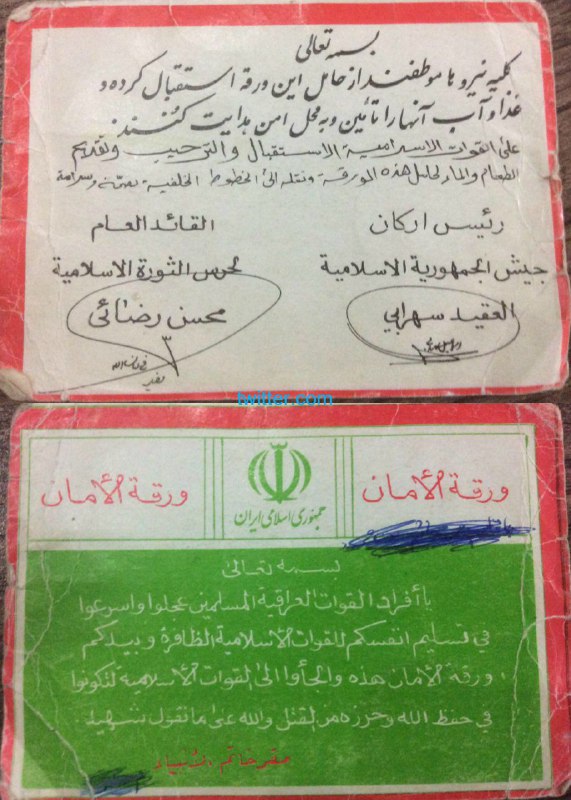 بسمه تعالی
کلیه نیروها موظفند از حامل این ورقه استقبال کرده و
غذا و آب آنها را تأمین و به محل امن هدایت کنند.
على القوات الاسلامية الاستقبال والترحيب وتقديم
الطعام والماء لحامل هذه الورقة ونقله الى الخطوط الخلفية بصحة وسلامة
رئيس اركان
القائد العام
جيش الجمهورية الاسلامية
لحرس الثورة الاسلامية
العقيد سهرابي
محسن رضائی
twitter.com
ورقة الأمان
ورقة الأمان
جمهوری اسلامی ایران
بسمه تعالى
يا أفراد القوات العراقية المسلمين عجلوا واسرعوا
في تسليم انفسكم للقوات الاسلامية الظافرة وبيدكم
ورقة الأمان هذه والجأوا الى القوات الاسلامية لتكونوا
في حفظ الله وحرزه من القتل والله على ما نقول شهيد.
مقر خاتم الأنبياء